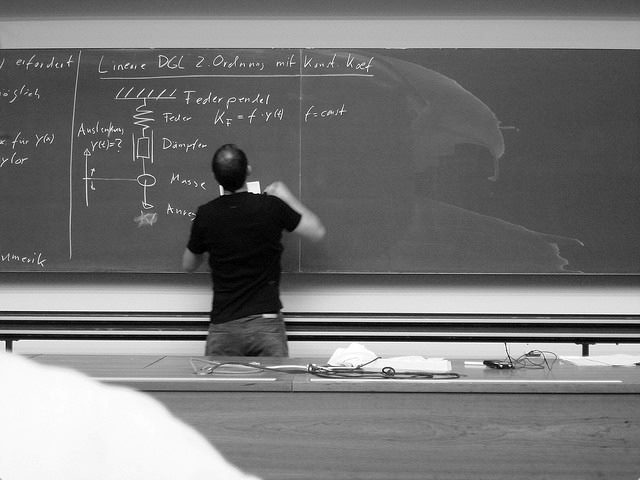 erfordert
öglich
für y(x)
ylor
umerik
Lineare DGL 2. Ordnung mit Konst. Koef
Federpendel
Feder K_F = f · y(t) f = const
Auslenkung
y(t) = ?
Dämpfer
Masse